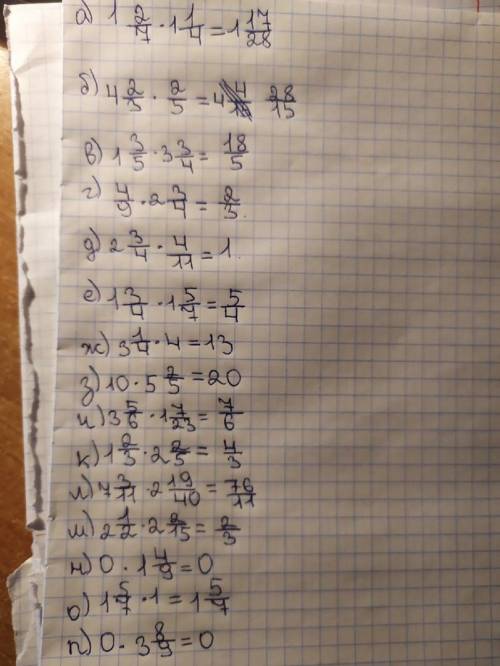 а) 1 2/7 · 1 1/4 = 1 17/28
б) 4 2/3 · 2/5 = 4 28/15
в) 1 3/5 · 3 3/4 = 18/5
г) 4/9 · 2 3/4 = 2/3
д) 2 3/4 · 4/11 = 1
е) 1 3/4 · 1 5/7 = 5/4
ж) 3 1/4 · 4 = 13
з) 10 · 5 2/5 = 20
и) 3 5/6 · 1 7/23 = 7/6
к) 1 2/3 · 2 2/5 = 4/3
л) 7 3/11 · 2 19/40 = 76/11
м) 2 1/2 · 2 2/15 = 2/3
н) 0 · 1 4/9 = 0
о) 1 5/7 · 1 = 1 5/7
п) 0 · 3 8/9 = 0